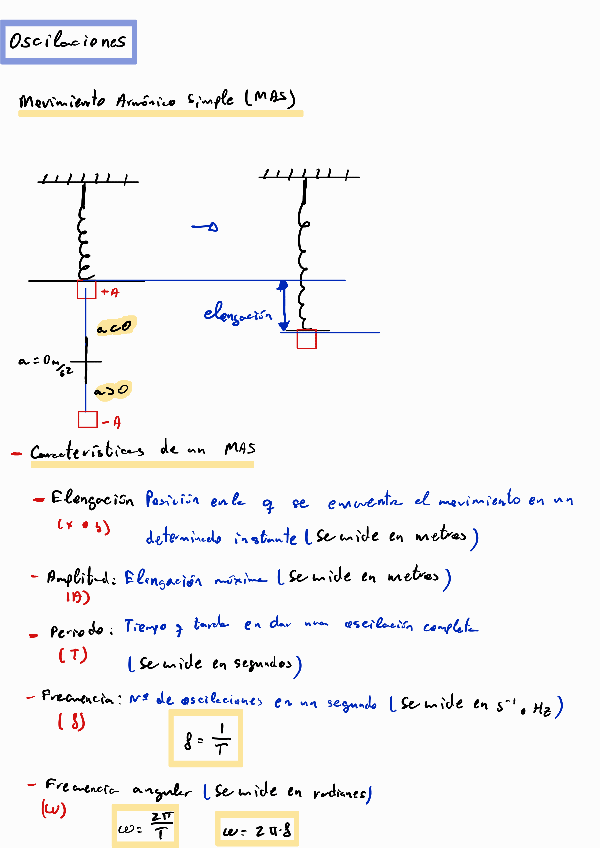 Oscilaciones
Movimiento Armónico Simple (MAS)
+A
elongación
a<0
a=0m/s2
a>0
-A
- Características de un MAS
- Elongación Posición en la q se encuentra el movimiento en un
(x o y) determinado instante (Se mide en metros)
- Amplitud: Elongación máxima (Se mide en metros)
(A)
- Periodo: Tiempo q tarda en dar una oscilación completa
(T) (Se mide en segundos)
- Frecuencia: Nº de oscilaciones en un segundo (Se mide en s⁻¹ o Hz)
(f) f = 1/T
- Frecuencia angular (Se mide en radianes)
(ω) ω = 2π/T ω = 2π·f